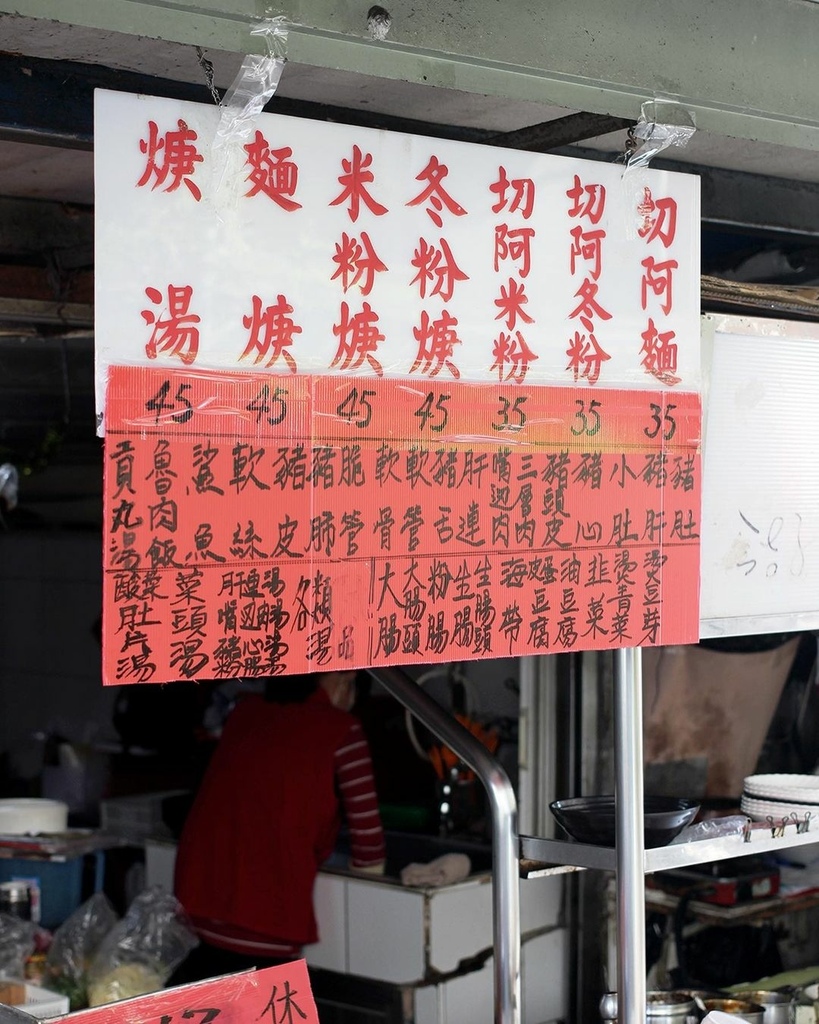 切阿麵
切阿冬粉
切阿米粉
冬粉焿
米粉焿
麵焿
焿湯
35
35
35
45
45
45
45
豬肚
豬肝
小肚
豬心
豬頭皮
三層肉
嘴边肉
肝連
豬舌
軟管
軟骨
脆管
豬肺
豬皮
軟絲
鯊魚
魯肉飯
貢丸湯
燙豆芽
燙青菜
韭菜
油豆腐
皮蛋豆腐
海帶
生腸頭
生腸
粉腸
大腸頭
大腸
各類湯
菜頭湯
酸菜肚片湯
休